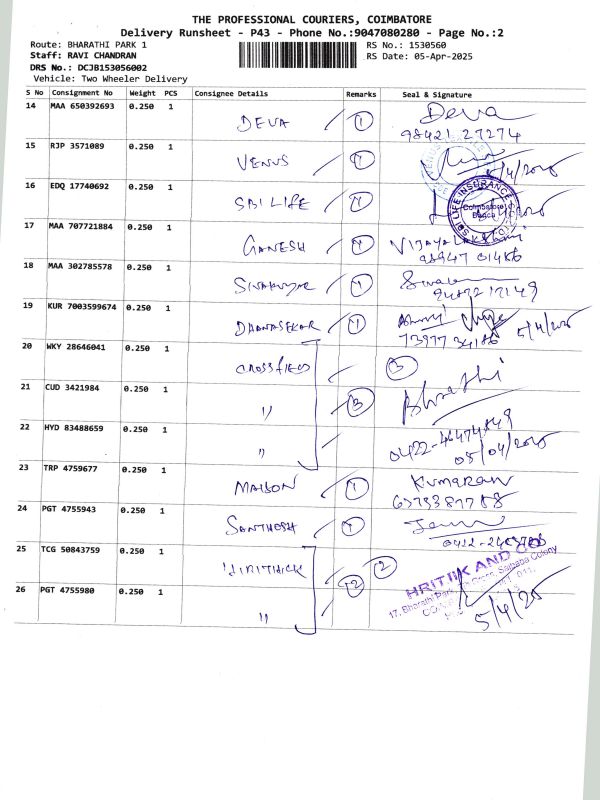 THE PROFESSIONAL COURIERS, COIMBATORE
Delivery Runsheet - P43 - Phone No.:9047080280 - Page No.:2
Route: BHARATHI PARK 1
RS No.: 1530560
Staff: RAVI CHANDRAN
RS Date: 05-Apr-2025
DRS No.: DCJB153056002
Vehicle: Two Wheeler Delivery
S No Consignment No Weight PCS Consignee Details Remarks Seal & Signature
14 MAA 650392693 0.250 1 DEVA 1 Deva
98421 27274
15 RJP 3571089 0.250 1 VENUS 1
16 EDQ 17740692 0.250 1 SBI LIFE 1 SBI LIFE INSURANCE
Coimbatore
17 MAA 707721884 0.250 1 GANESH 1
98947 01486
18 MAA 302785578 0.250 1 1
19 KUR 7003599674 0.250 1 DHANASEKAR 1 5/4/25
73977 34186
20 WKY 28646041 0.250 1 CROSSFIELD 3
21 CUD 3421984 0.250 1 〃 3 Bharathi
22 HYD 83488659 0.250 1 〃
05/04/2025
23 TRP 4759677 0.250 1 1 Kumaran
24 PGT 4755943 0.250 1 SANTHOSH 1
25 TCG 50843759 0.250 1 2 2 HRITIK AND CO
17, Bharathi Park Cross, Saibaba Colony
26 PGT 4755980 0.250 1 〃 5/4/25